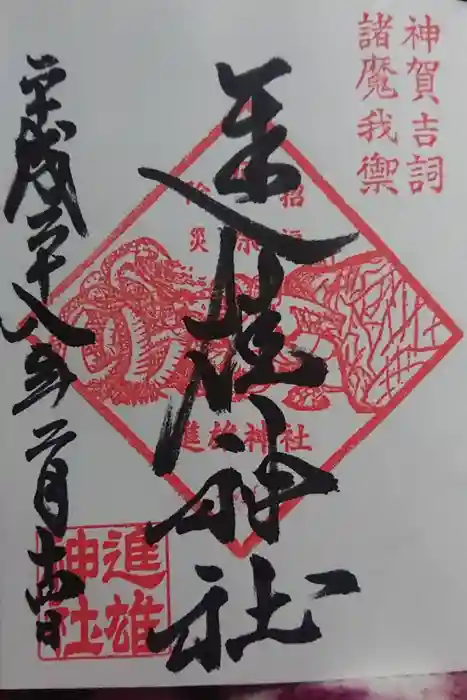 神賀吉詞
諸魔我禦
招福
除災
進雄神社
進雄神社
平成二十八年二月十四日
進雄
神社